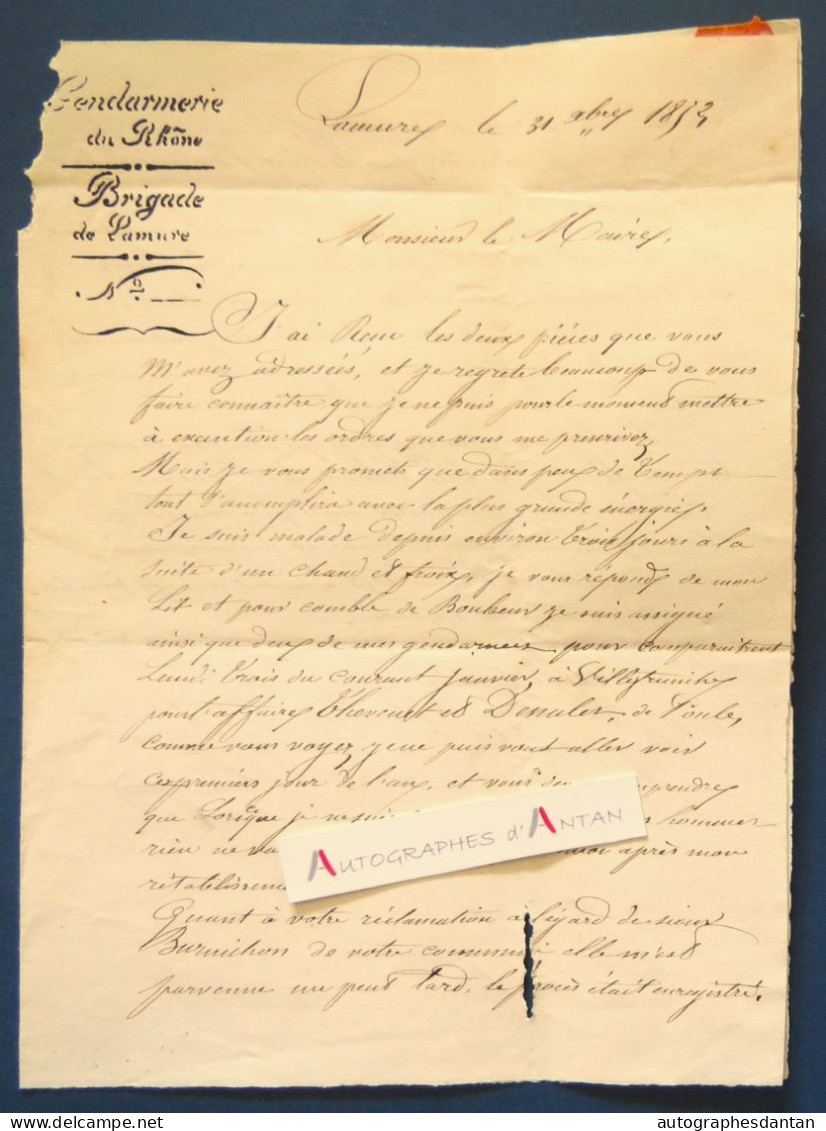 Gendarmerie
du Rhône
Brigade
de Lamure
N°
Lamure le 31 xbre 1852
Monsieur le Maire,
J'ai Reçu les deux pièces que vous
m'avez adressées, et je regrete beaucoup de vous
faire connaître que je ne puis pour le moment mettre
à execution les ordres que vous me prescrivez
Mais je vous promets que dans peux de temps
tout s'acomplira avec la plus grande énergie.
Je suis malade depuis environ trois jours à la
suite d'un chaud et froix, je vous réponds de mon
Lit et pour comble de Bonheur je suis assigné
ainsi que deux de mes gendarmes pour comparaitrent
Lundi trois du courant janvier, à Villefranche
pour l'affaire Thevenet et de
comme vous voyez je ne puis vous aller voir
ces premiers jour de l'an, et vous
que Lorsque je ne suis hommes
rien ne va après mon
rétablisseme
Quant à votre réclamation a légard de sieur
Burnichon de votre commune elle m'est
parvenue un peut tard, le procès était enregistré.
AUTOGRAPHES d'ANTAN
autographesdantan